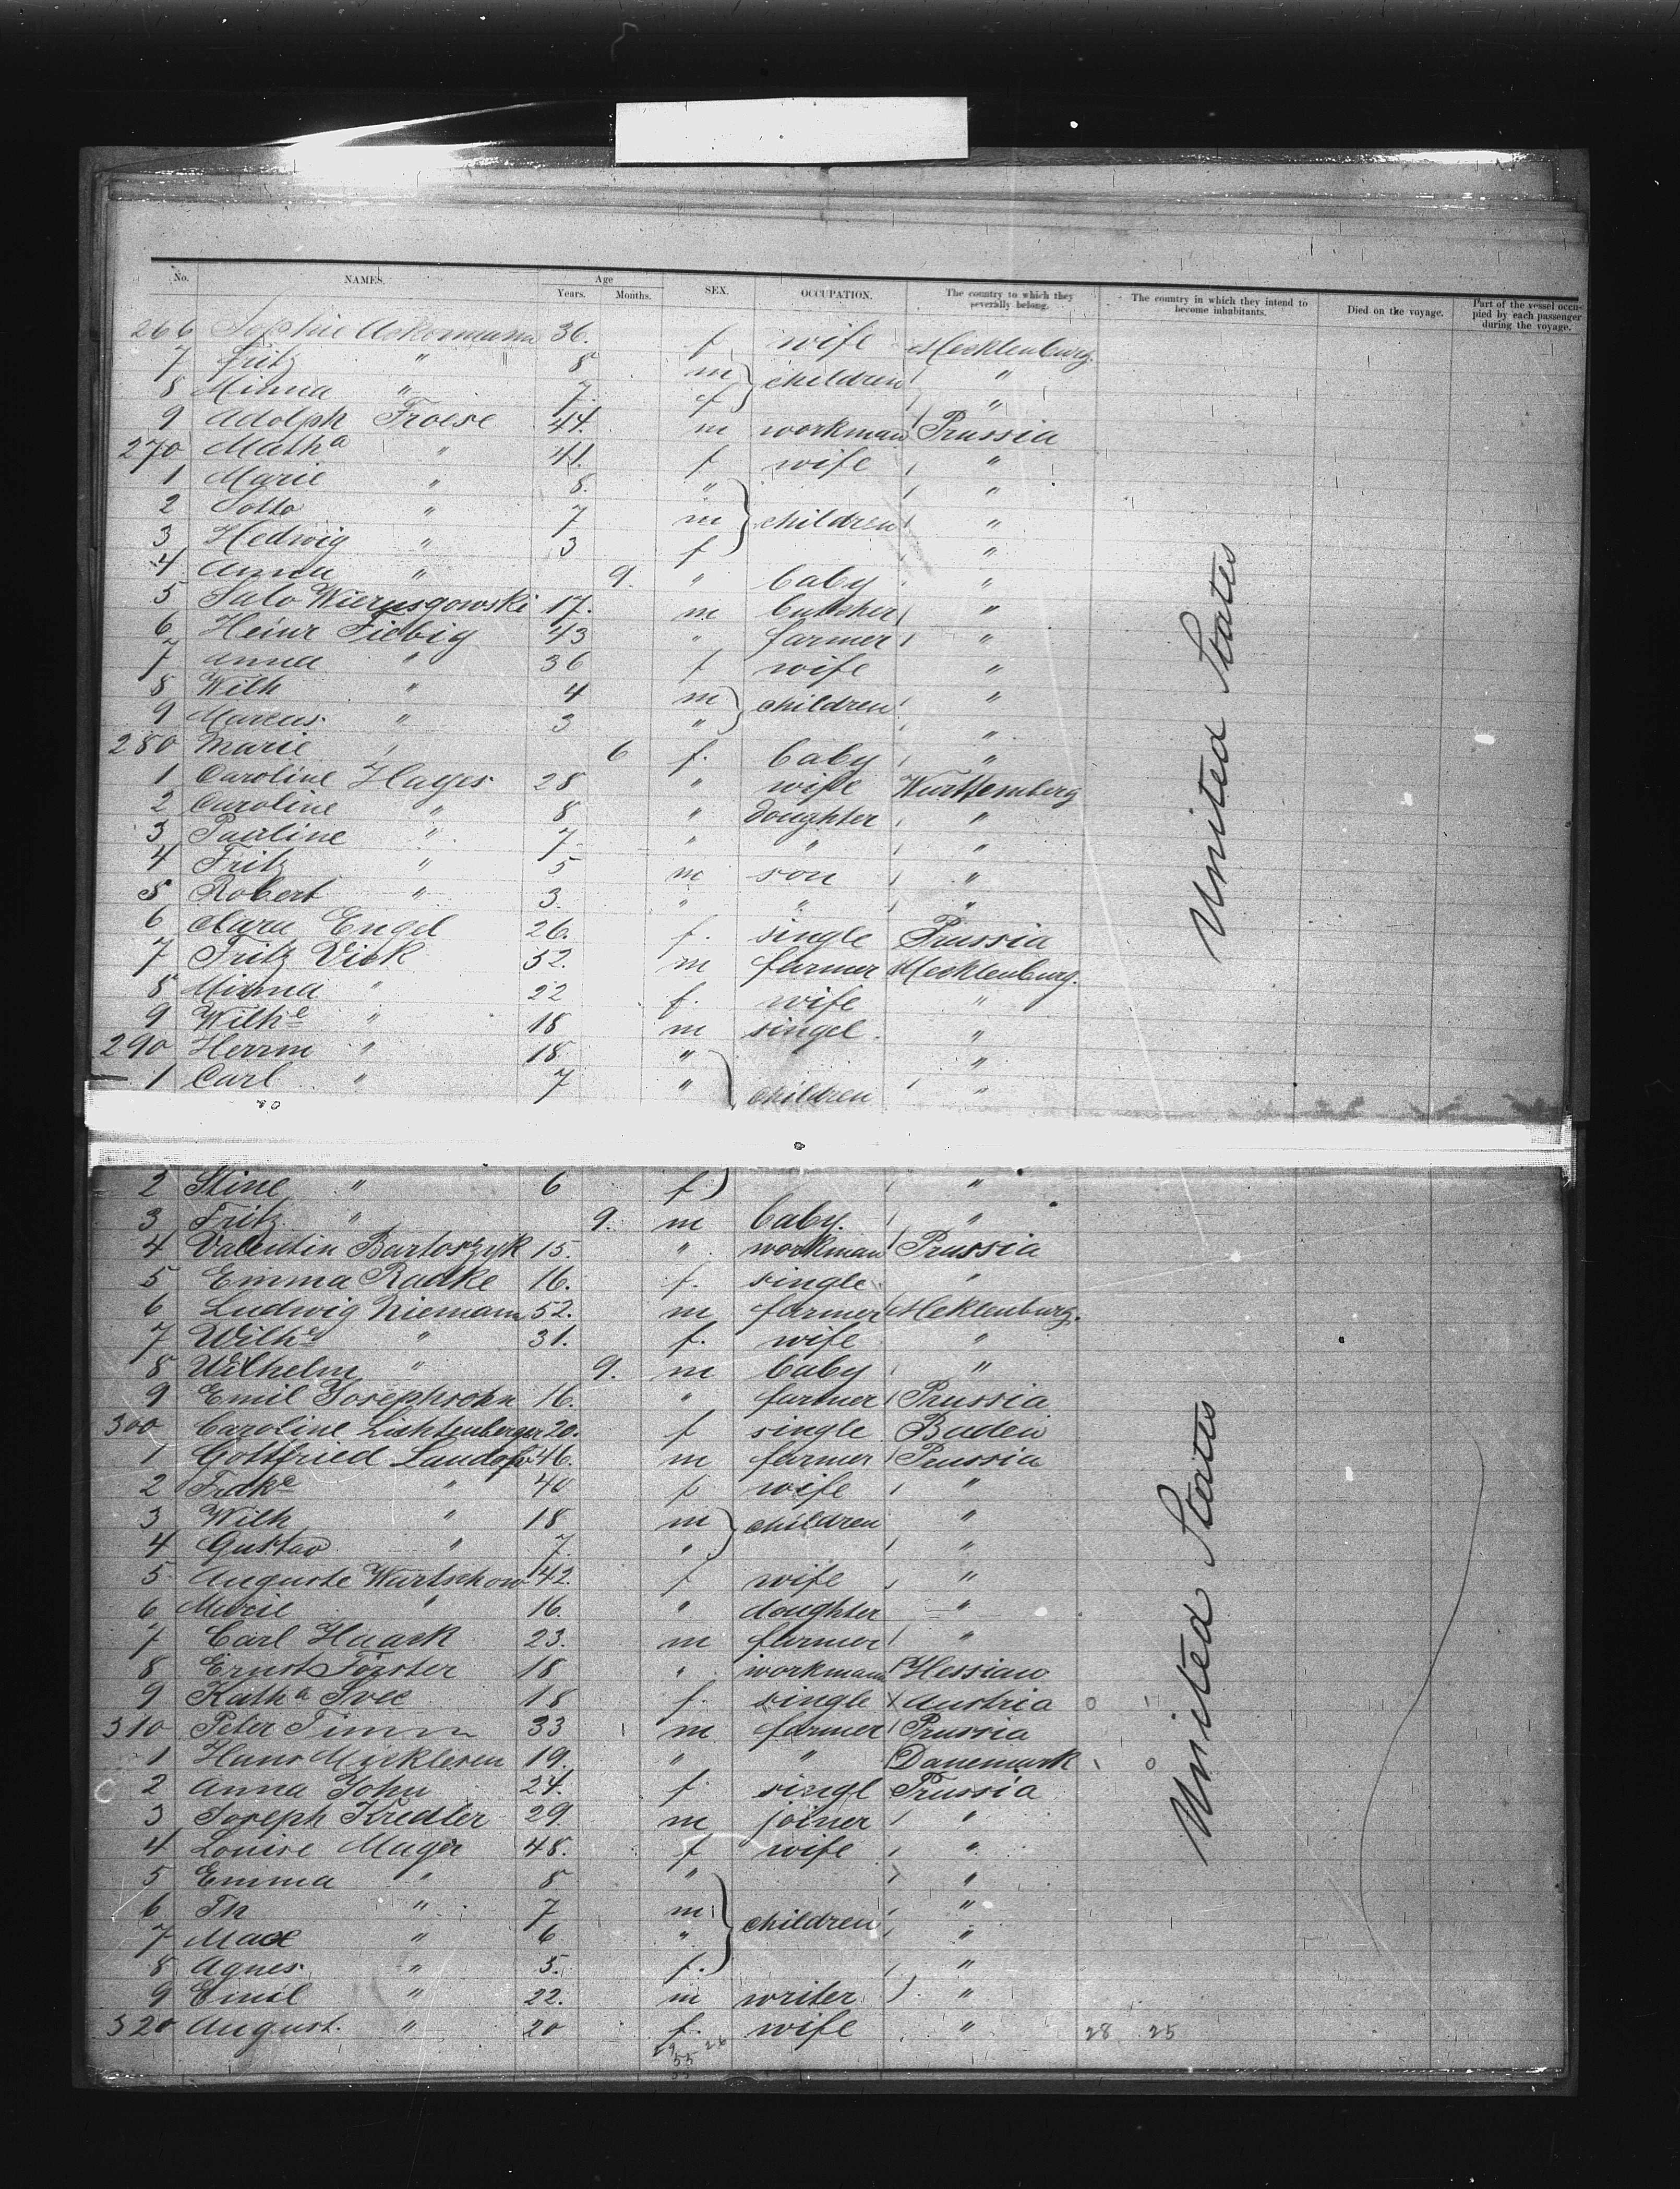 No. NAMES. Age Years. Months. SEX. OCCUPATION. The country to which they severally belong. The country in which they intend to become inhabitants. Died on the voyage. Part of the vessel occupied by each passenger during the voyage.
266 Sophie Ackermann 36. f wife Mecklenburg.
7 Fritz " " 8 m children "
8 Minna " 7. f "
9 Adolph Froese 44. m workman Prussia
270 Matha " 41. f wife "
1 Marie " 8. " "
2 Sotto " 7 m children "
3 Hedwig " 3 f "
4 Anna " 9. " baby "
5 Salo Wierusgowski 17. m butcher "
6 Heinr Fiebig 43 " farmer "
7 Anna " 36 f wife "
8 Wilh " 4 m children "
9 Marcus " 3 " "
280 Marie " 6 f. baby "
1 Caroline Hayes 28 " wife Wurttemberg
2 Caroline " 8 " doughter "
3 Pauline " 7 " " "
4 Fritz " 5 m son "
5 Robert " 3. " " "
6 Clara Engel 26. f. single Prussia
7 Fritz Vick 52. m farmer Mecklenburg.
8 Minna " 22 f. wife "
9 Wilhe " 18 m singel "
290 Herrm " 18 " "
1 Carl " 7 " children "
2 Stine " 6 f "
3 Fritz " 9. m baby. "
4 Valentin Bartoszyk 15. " workman Prussia
5 Emma Radke 16. f. single "
6 Ludwig Niemann 52. m farmer Meklenburg.
7 Wilhe " 31. f. wife "
8 Wilhelm " 9. m baby "
9 Emil Josephsohn 16. " farmer Prussia
300 Caroline Lichtenberger 20. f single Baden
1 Gottfried 46. m farmer Prussia
2 Frdke " 40 f wife "
3 Wilh " 18 m children "
4 Gustav " 7. " "
5 Auguste Wartschow 42. f wife "
6 Marie " 16. " doughter "
7 Carl Haack 23. m farmer "
8 Ernst Förster 18 " workmann Hessian
9 Katha Svec 18 f. single Austria 0 1
310 Peter Timm 33 m farmer Prussia
1 Hans Micklesen 19. " " Danemark 1 0
2 Anna John 24. f singl Prussia
3 Joseph Kredler 29. m joiner "
4 Louise Mager 48. f wife "
5 Emma " 8 " "
6 Th " 7 m children "
7 Max " 6 " "
8 Agnes " 5. f. "
9 Emil " 22. m writer "
320 August. " 20 f. wife " 28 25
29 26
55
United States
United States